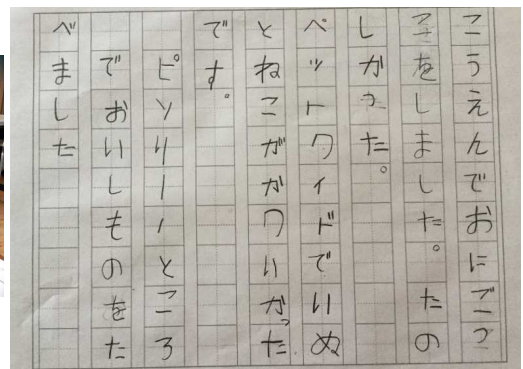 こうえんでおにごっ
こをしました。たの
しかった。
ペットワイドでいぬ
とねこががワいかった
です。
ピソリーノところ
でおいしものをた
べました